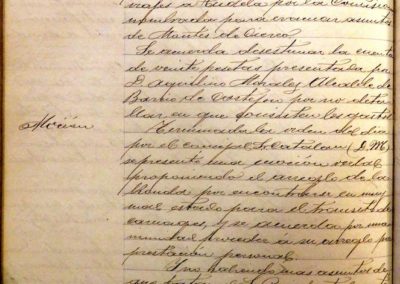 viajes a Tudela por la Comision
nombrada para evacuar asuntos
de Montes de Cierzo,
Se acuerda desestimar la cuenta
de veinte pesetas presentada por
D. Aquilino Morales Alcalde de
Barrio de por no deta
llar en que consisten los gastos
Moción
Terminada la orden del dia
por el concejal Sr Catalan (J. M.)
se presenta una moción verbal
proponiendo el arreglo de la
por encontrarse en muy
mal estado para el transito de
carruajes, y se acuerda por una
nimidad proceder a su arreglo por
prestación personal.
Y no habiendo mas asuntos de
que tratar